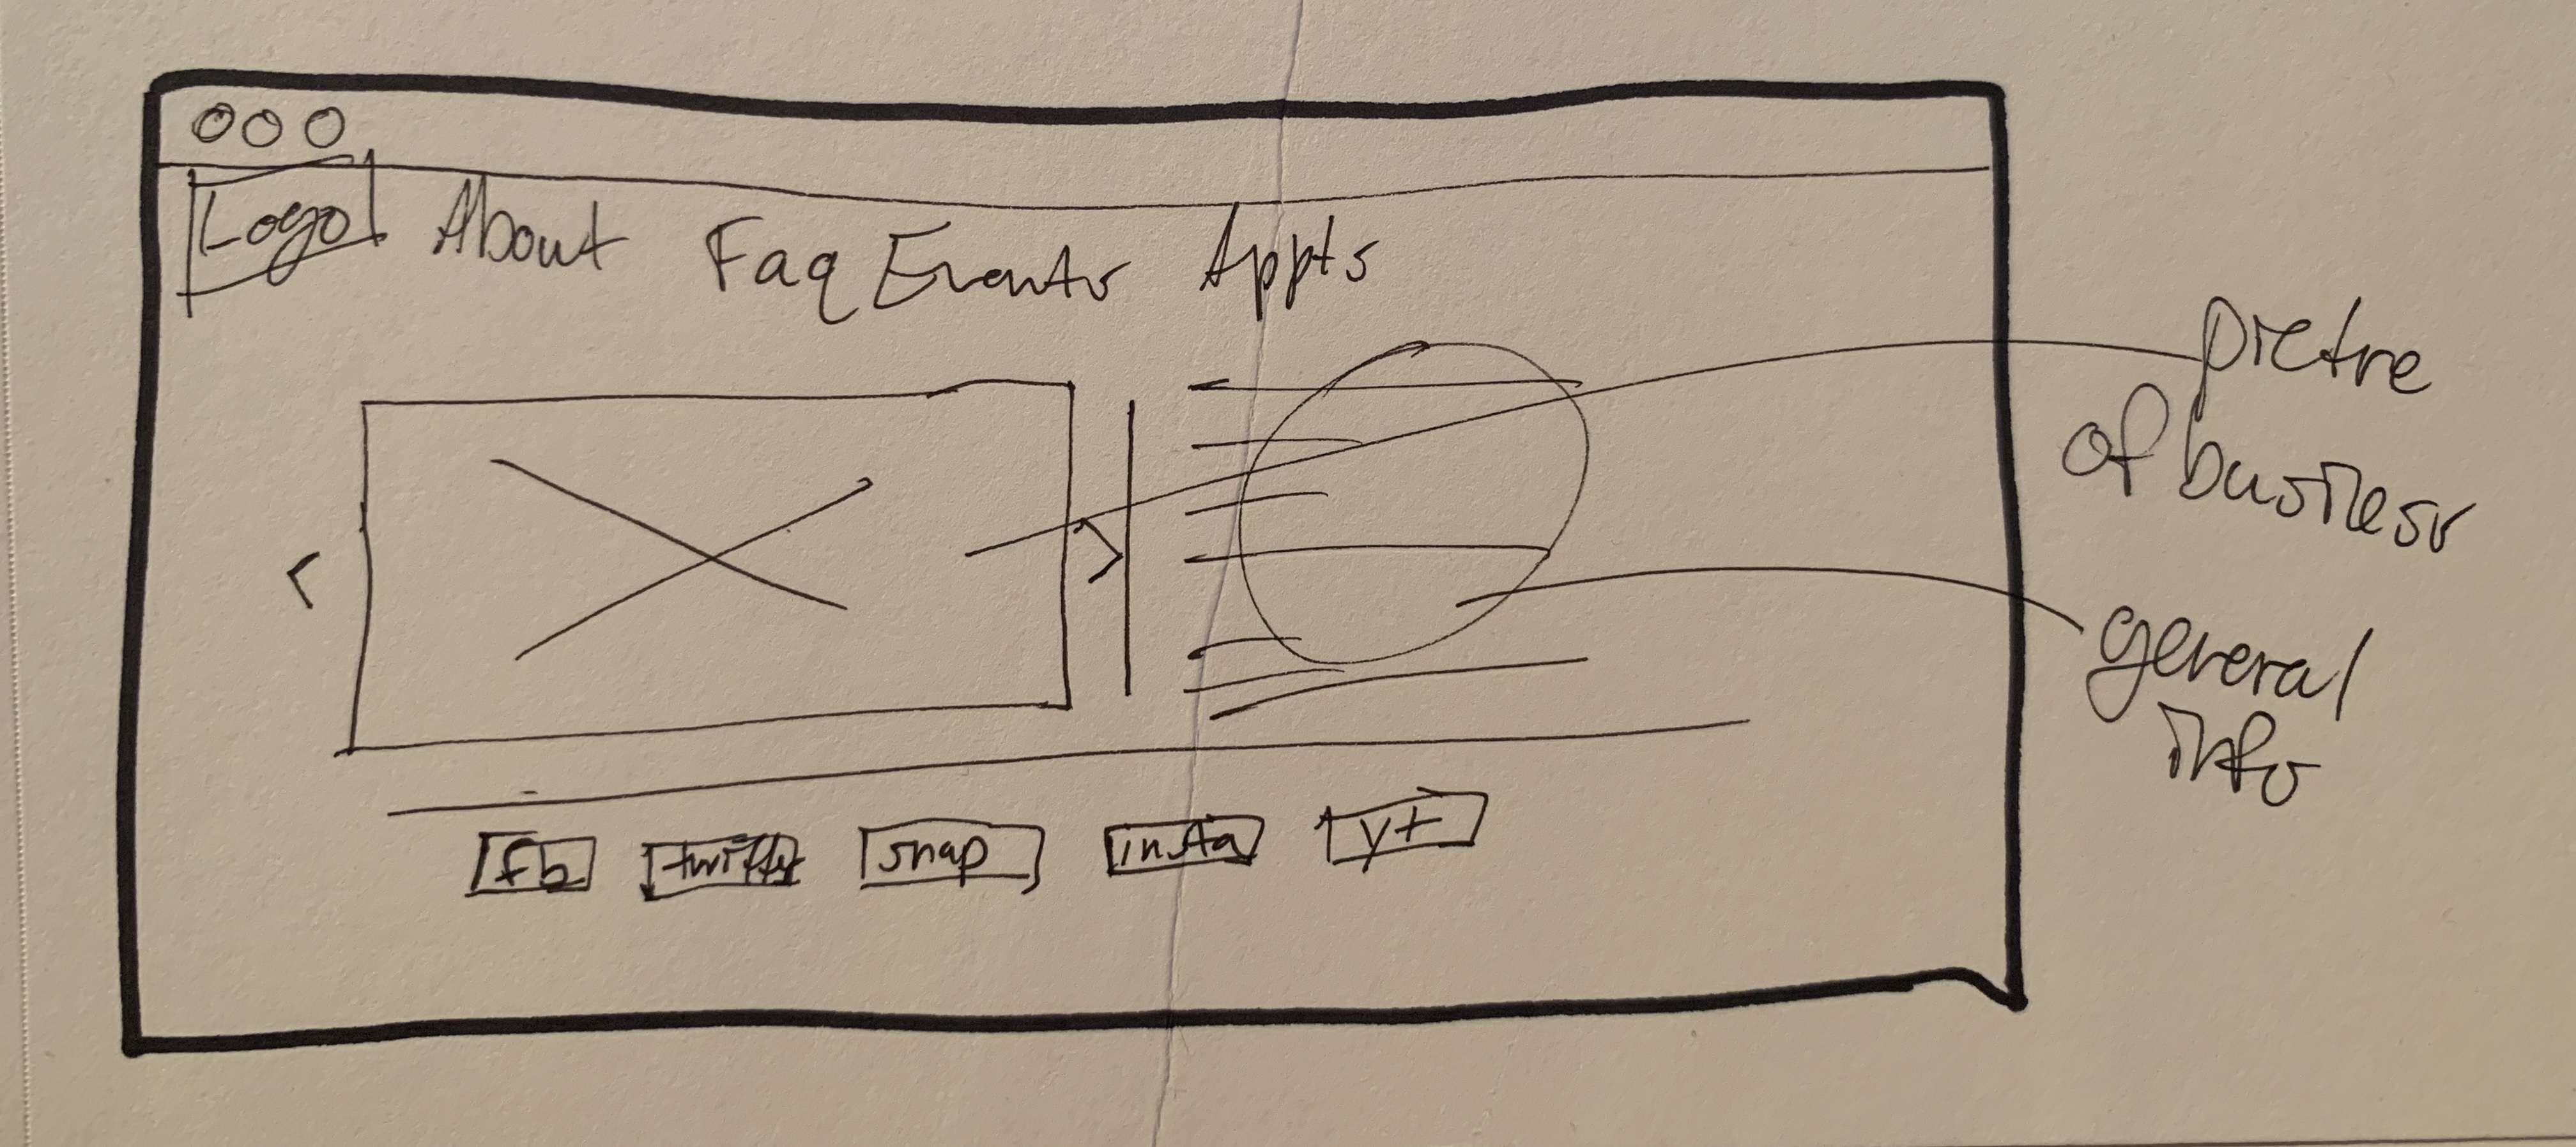 Logo About Faq Events Appts
pictre
of business
general
info
fb twitter snap insta yt